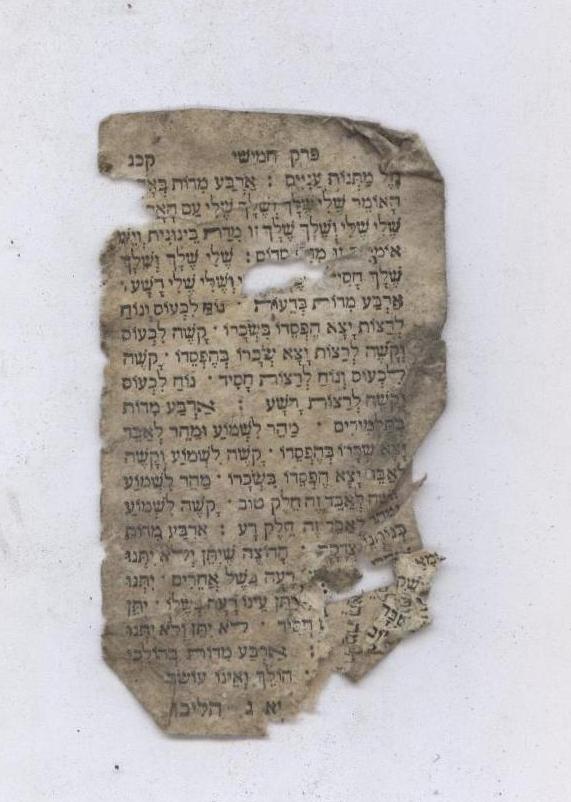 פרק חמישי קכג
מַתְּנוֹת עֲנִיִּים : אַרְבַּע מִדּוֹת בָּאָדָ
הָאוֹמֵר שֶׁלִּי שֶׁלָּךְ וְשֶׁלָּךְ שֶׁלִּי עַם הָאָרֶ
שֶׁלִּי שֶׁלִּי וְשֶׁלָּךְ שֶׁלָּךְ זוֹ מִדָּה בֵּינוֹנִית וְיֵשׁ
אוֹמְרִים זוֹ מִדַּת סְדוֹם : שֶׁלִּי שֶׁלָּךְ וְשֶׁלָּךְ
שֶׁלָּךְ חָסִי וְשֶׁלִּי שֶׁלִּי רָשָׁע :
אַרְבַּע מִדּוֹת בְּדֵעוֹת נוֹחַ לִכְעוֹס וְנוֹחַ
לִרְצוֹת יָצָא הֶפְסֵדוֹ בִּשְׂכָרוֹ · קָשֶׁה לִכְעוֹס
וְקָשֶׁה לִרְצוֹת יָצָא שְׂכָרוֹ בְּהֶפְסֵדוֹ · קָשֶׁה
לִכְעוֹס וְנוֹחַ לִרְצוֹת חָסִיד · נוֹחַ לִכְעוֹס
וְקָשֶׁה לִרְצוֹת רָשָׁע : אַרְבַּע מִדּוֹת
בְּתַלְמִידִים · מַהֵר לִשְׁמוֹעַ וּמַהֵר לְאַבֵּד
יָצָא שְׂכָרוֹ בְּהֶפְסֵדוֹ · קָשֶׁה לִשְׁמוֹעַ וְקָשֶׁה
לְאַבֵּד יָצָא הֶפְסֵדוֹ בִּשְׂכָרוֹ · מַהֵר לִשְׁמוֹעַ
וְקָשֶׁה לְאַבֵּד זֶה חֵלֶק טוֹב · קָשֶׁה לִשְׁמוֹעַ
וּמַהֵר לְאַבֵּד זֶה חֵלֶק רָע : אַרְבַּע מִדּוֹת
בְּנוֹתְנֵי צְדָקָה · הָרוֹצֶה שֶׁיִּתֵּן וְלֹא יִתְּנוּ
רָעָה בְּשֶׁל אֲחֵרִים · יִתְּנוּ
יִתֵּן עֵינוֹ רָעָה בְּשֶׁלּוֹ · יִתֵּן
חָסִיד · לֹא יִתֵּן וְלֹא יִתְּנוּ
: אַרְבַּע מִדּוֹת בְּהוֹלְכֵי
: הוֹלֵךְ וְאֵינוֹ עוֹשֶׂה
יא ג הליכו